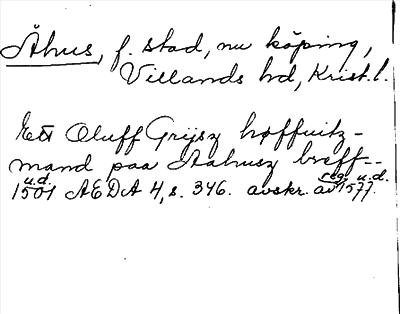 Åhus, f. stad, nu köping,
Villands hd, Krist. l.
Ett Oluff Grijsz høffuitz-
mand paa Aahusz breff--
u.d. reg. u.d.
1501 AEDA 4, s. 346. avskr. av 1577.